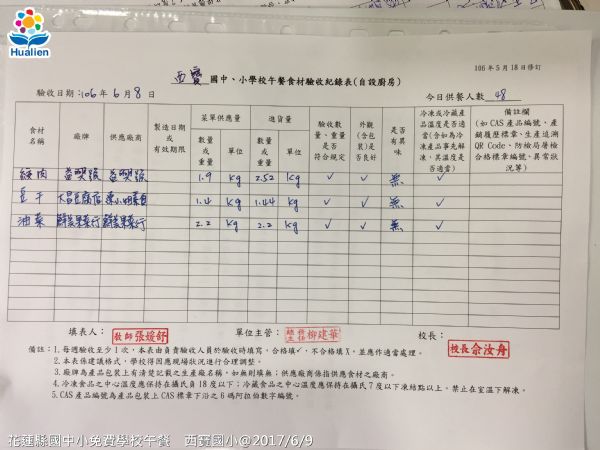 Hualien
106 年 5 月 18 日修訂
西寶 國中、小學校午餐食材驗收紀錄表(自設廚房)
驗收日期:106 年 6 月 8 日
今日供餐人數 48
食材名稱 廠牌 供應廠商 製造日期或有效期限 菜單供應量 數量或重量 單位 進貨量 數量或重量 單位 驗收數量、重量是否符合規定 外觀(含包裝)是否良好 是否有異味 冷凍或冷藏產品溫度是否適當(含如為冷凍產品事先解凍,其溫度是否適當) 備註欄(如 CAS 產品編號、產銷履歷標章、生產追溯 QR Code、防檢局屠檢合格標章編號、異常狀況等)
絞肉 1.9 kg 2.52 kg ✓ ✓ 無 ✓
豆干 1.4 kg 1.44 kg ✓ ✓ 無 ✓
油菜 2.2 kg 2.2 kg ✓ ✓ 無 ✓
填表人: 教師張媛舒 單位主管: 總務主任柳建華 校長: 校長佘汝舟
備註:1.每週驗收至少 1 次,本表由負責驗收人員於驗收時填寫,合格填✓,不合格填 X,並應作適當處理。
2.本表係建議格式,學校得因應現場狀況進行合理調整。
3.廠牌為產品包裝上有清楚記載之生產廠名稱,如無則填無;供應廠商係指供應食材之廠商。
4.冷凍食品之中心溫度應保持在攝氏負 18 度以下;冷藏食品之中心溫度應保持在攝氏 7 度以下凍結點以上,禁止在室溫下解凍。
5.CAS 產品編號為產品包裝上 CAS 標章下沿之 6 碼阿拉伯數字編號。
花蓮縣國中小免費學校午餐 西寶國小@2017/6/9